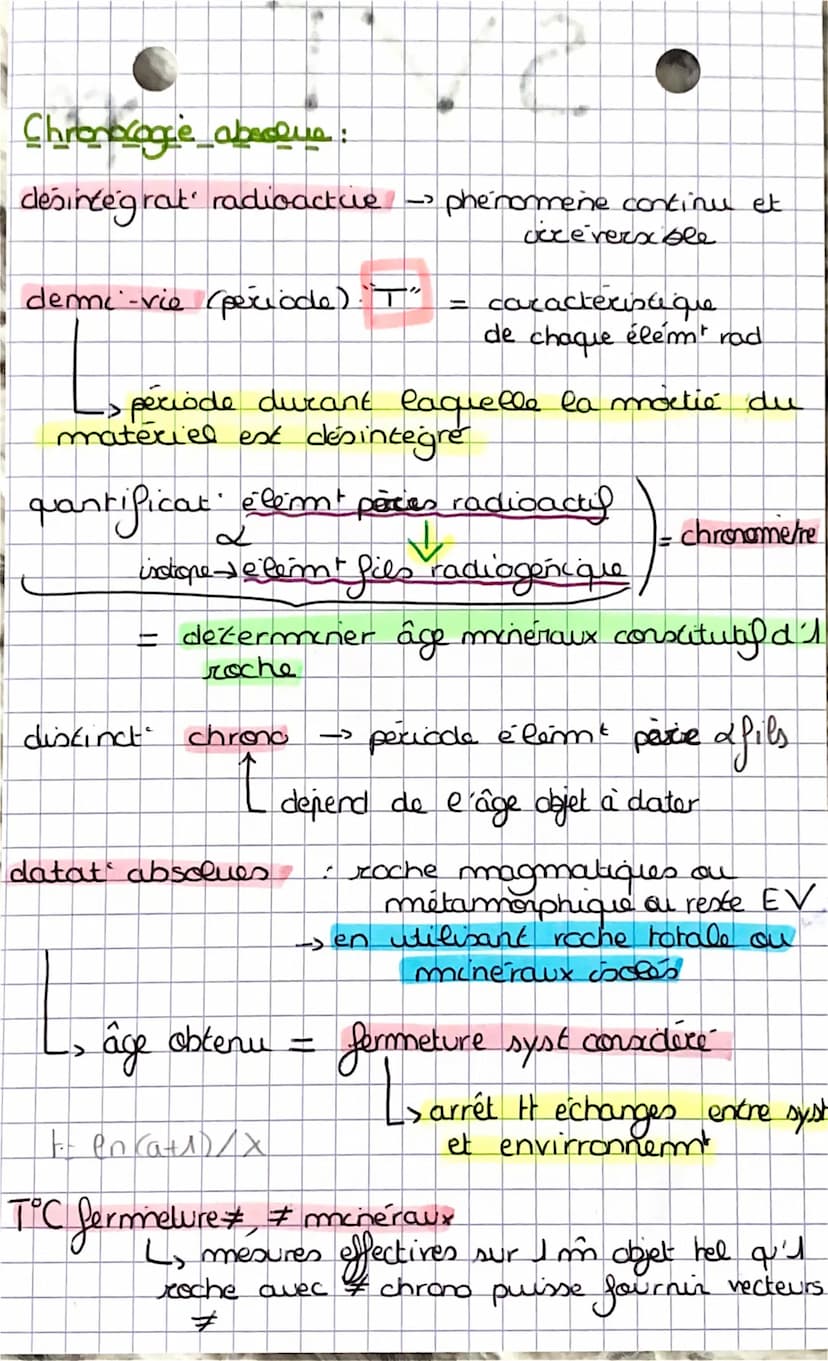 Chronologie absolue :
désintégrat° radioactive → phénomène continu et
irréversible
demi-vie (période) "T" = caractéristique
de chaque élémt rad
↳ période durant laquelle la moitié du
matériel est désintégré
quantificat° élémt pères radioactif
&
↓
= chronomètre
isotope → élémt fils radiogénique
= déterminer âge minéraux constitutif d'1
roche
distinct° chrono → période élémt père & fils
dépend de l'âge objet à dater
datat° absolues : roche magmatiques ou
métamorphique ou reste EV
→ en utilisant roche totale ou
minéraux isolés
↳ âge obtenu = fermeture syst considéré
↳ arrêt tt échanges entre syst
t= ln(a+1)/λ
et environnemt
T°C fermeture ≠, ≠ minéraux
↳ mesures effectives sur 1 m̂ objet tel qu'1
roche avec ≠ chrono puisse fournir vecteurs
≠